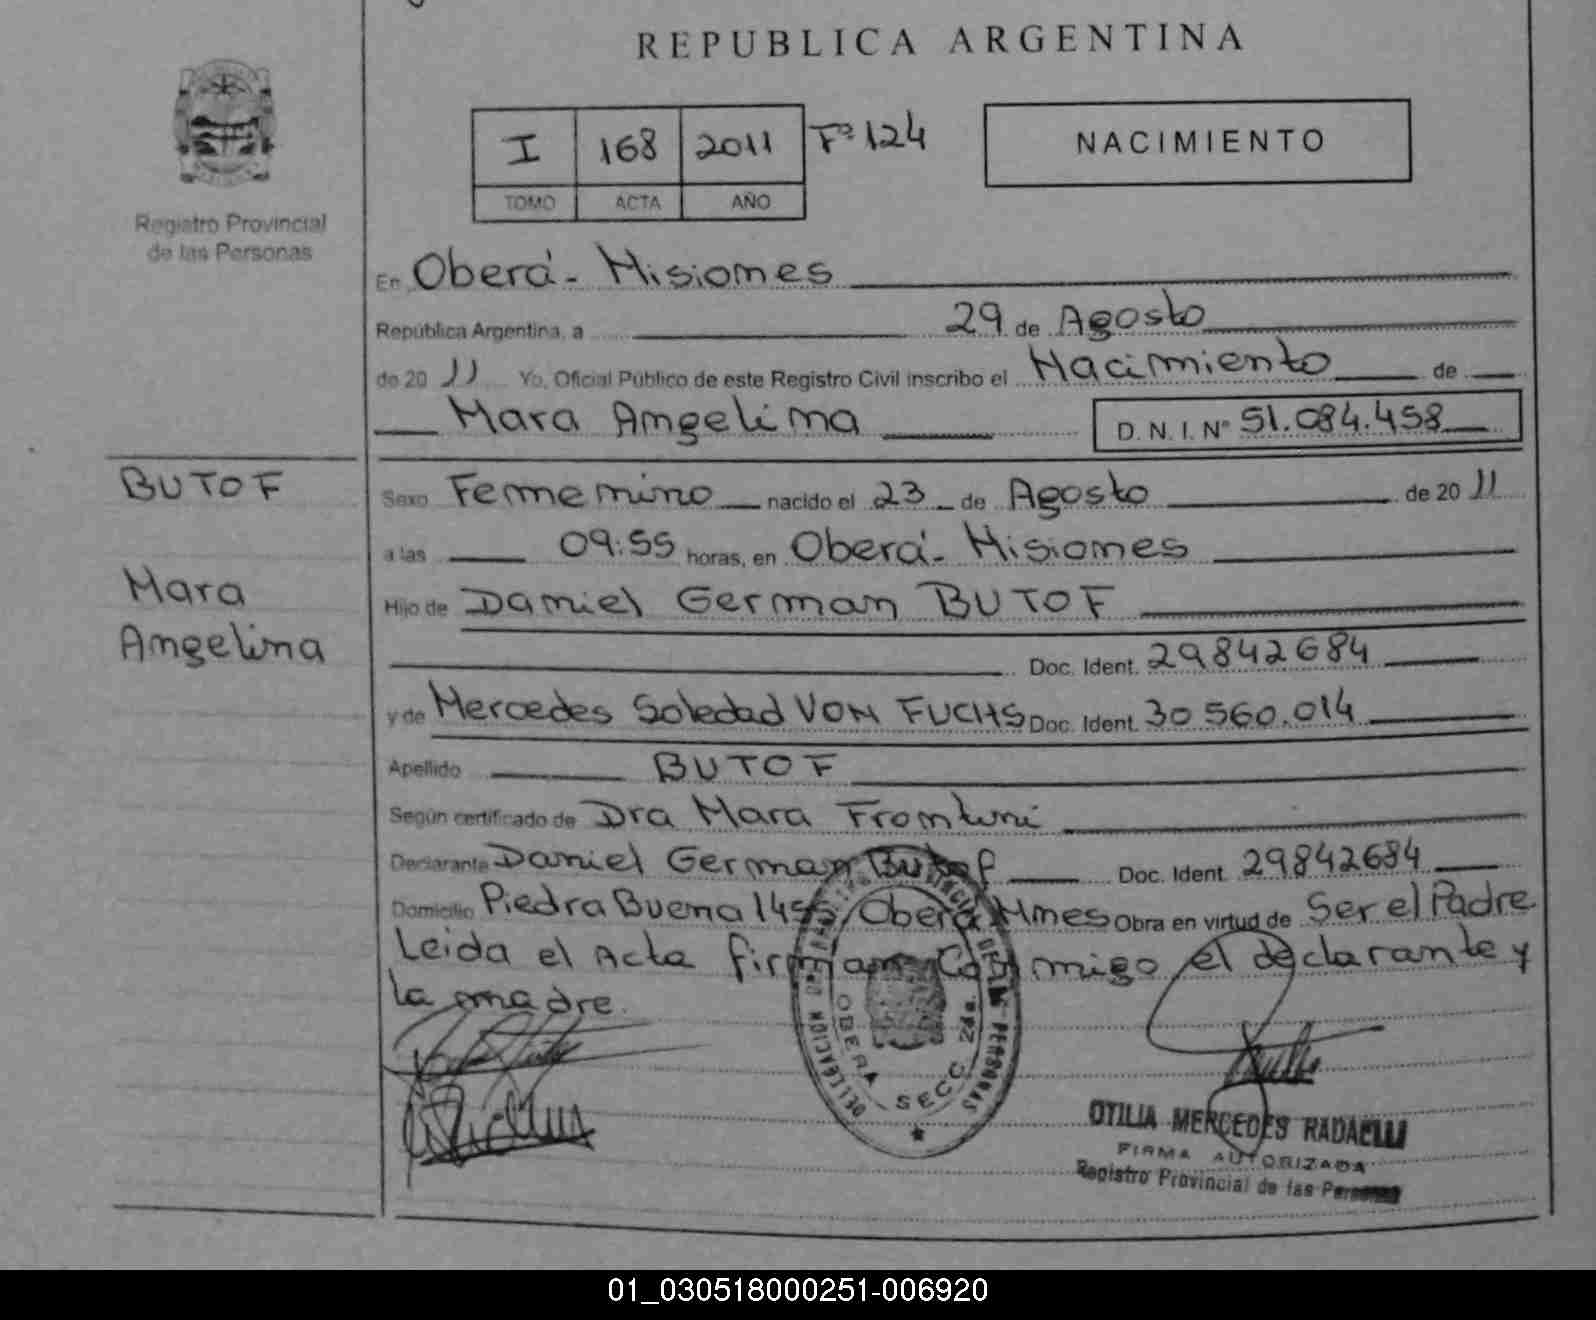 REPUBLICA ARGENTINA
I 168 2011 Fº 124
TOMO ACTA AÑO
NACIMIENTO
Registro Provincial
de las Personas
En Oberá - Misiones
República Argentina, a 29 de Agosto
de 20 11 Yo, Oficial Público de este Registro Civil inscribo el Nacimiento de
Mara Angelina D.N.I. Nº 51.084.458
BUTOF
Mara
Angelina
Sexo Femenino nacido el 23 de Agosto de 20 11
a las 09:55 horas, en Oberá - Misiones
Hijo de Daniel German BUTOF
Doc. Ident. 29842684
y de Mercedes Soledad VON FUCHS Doc. Ident. 30 560.014
Apellido BUTOF
Según certificado de Dra Mara Frontini
Declarante Daniel German Butof Doc. Ident. 29842684
Domicilio Piedra Buena 1455, Oberá Mnes Obra en virtud de Ser el Padre
Leida el Acta firman Conmigo el declarante y
la madre.
DELEGACION DE LAS PERSONAS
OBERA SECC. 2da.
OTILIA MERCEDES RADAELLI
FIRMA AUTORIZADA
Registro Provincial de las Personas
01_030518000251-006920